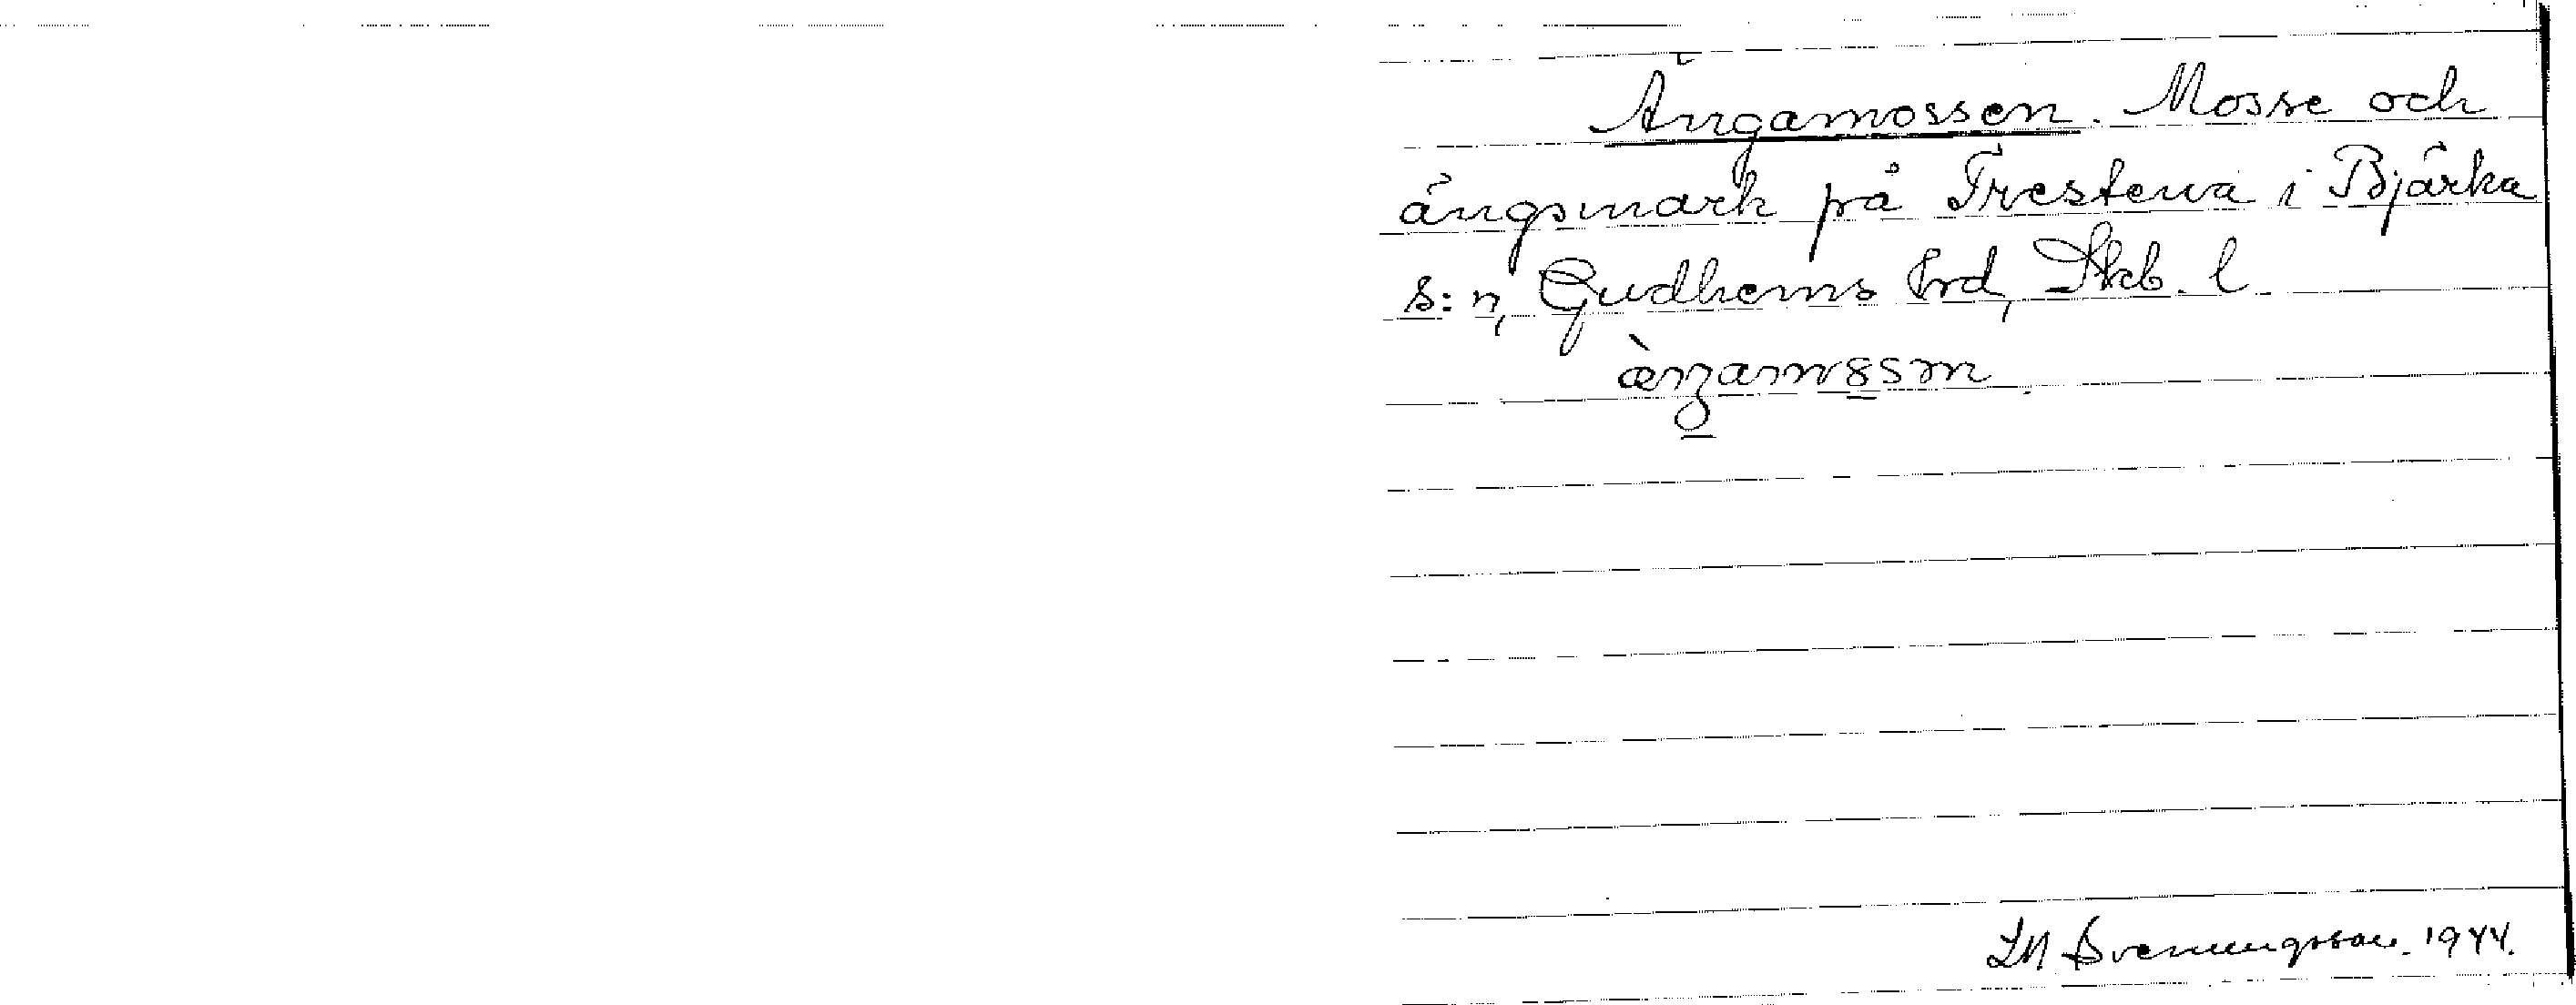 Ängamossen. Mosse och
ängsmark på Trestena i Bjärka
s:n, Gudhems hrd, Skb. l.
Svenungsson. 1944.